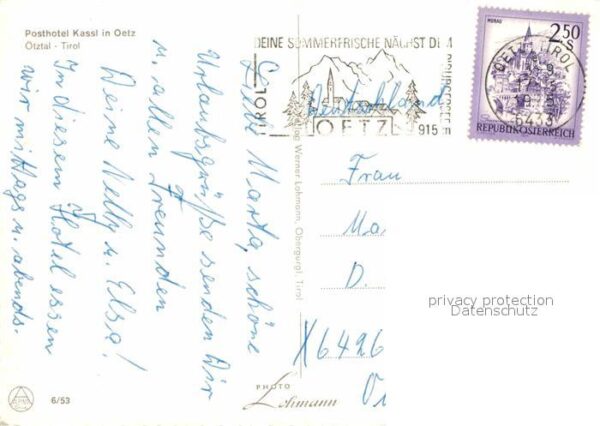 Posthotel Kassl in Oetz
Ötztal - Tirol
Liebe Marta, schöne
Urlaubsgrüße senden Dir
u. allen Freunden
Deine Nelly u. Elsa!
In diesem Hotel essen
wir mittags u. abends.
6/53
DEINE SOMMERFRISCHE NÄCHST DEM
TIROL
OETZ
915 m
MURAU
2.50
S
REPUBLIK ÖSTERREICH
OETZ, TIROL
6433
Deutschland
Werner Lohmann, Obergurgl, Tirol
PHOTO
Lohmann
Frau
Ma
D.
X6426
privacy protection
Datenschutz